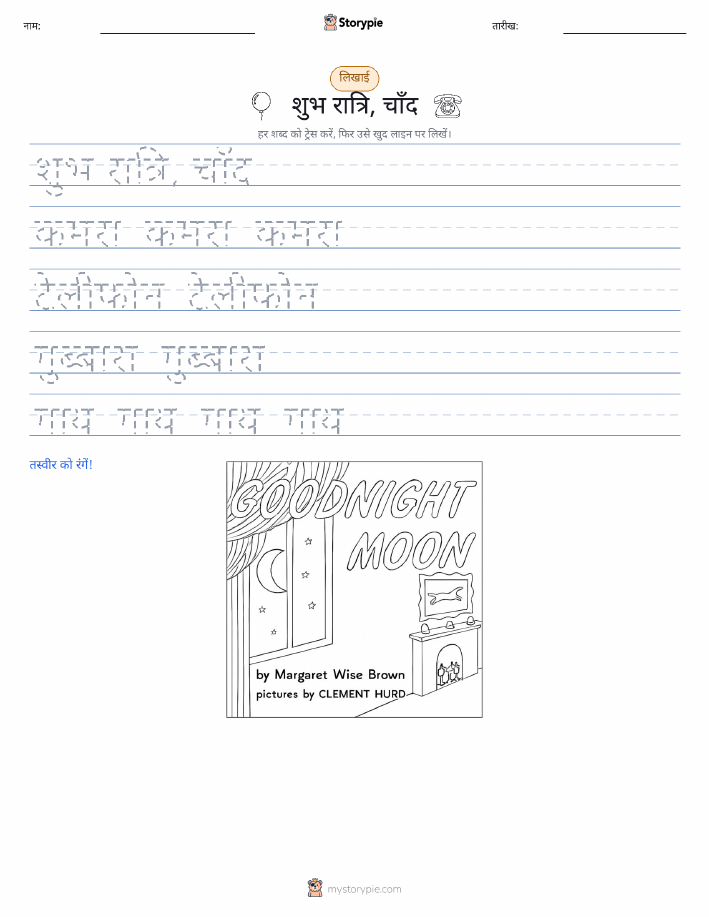 नाम:
Storypie
तारीख:
लिखाई
शुभ रात्रि, चाँद
हर शब्द को ट्रेस करें, फिर उसे खुद लाइन पर लिखें।
शुभ रात्रि, चाँद
कमरा कमरा कमरा
टेलीफोन टेलीफोन
गुब्बारा गुब्बारा
गाय गाय गाय गाय
तस्वीर को रंगें!
GOODNIGHT
MOON
by Margaret Wise Brown
pictures by CLEMENT HURD
mystorypie.com